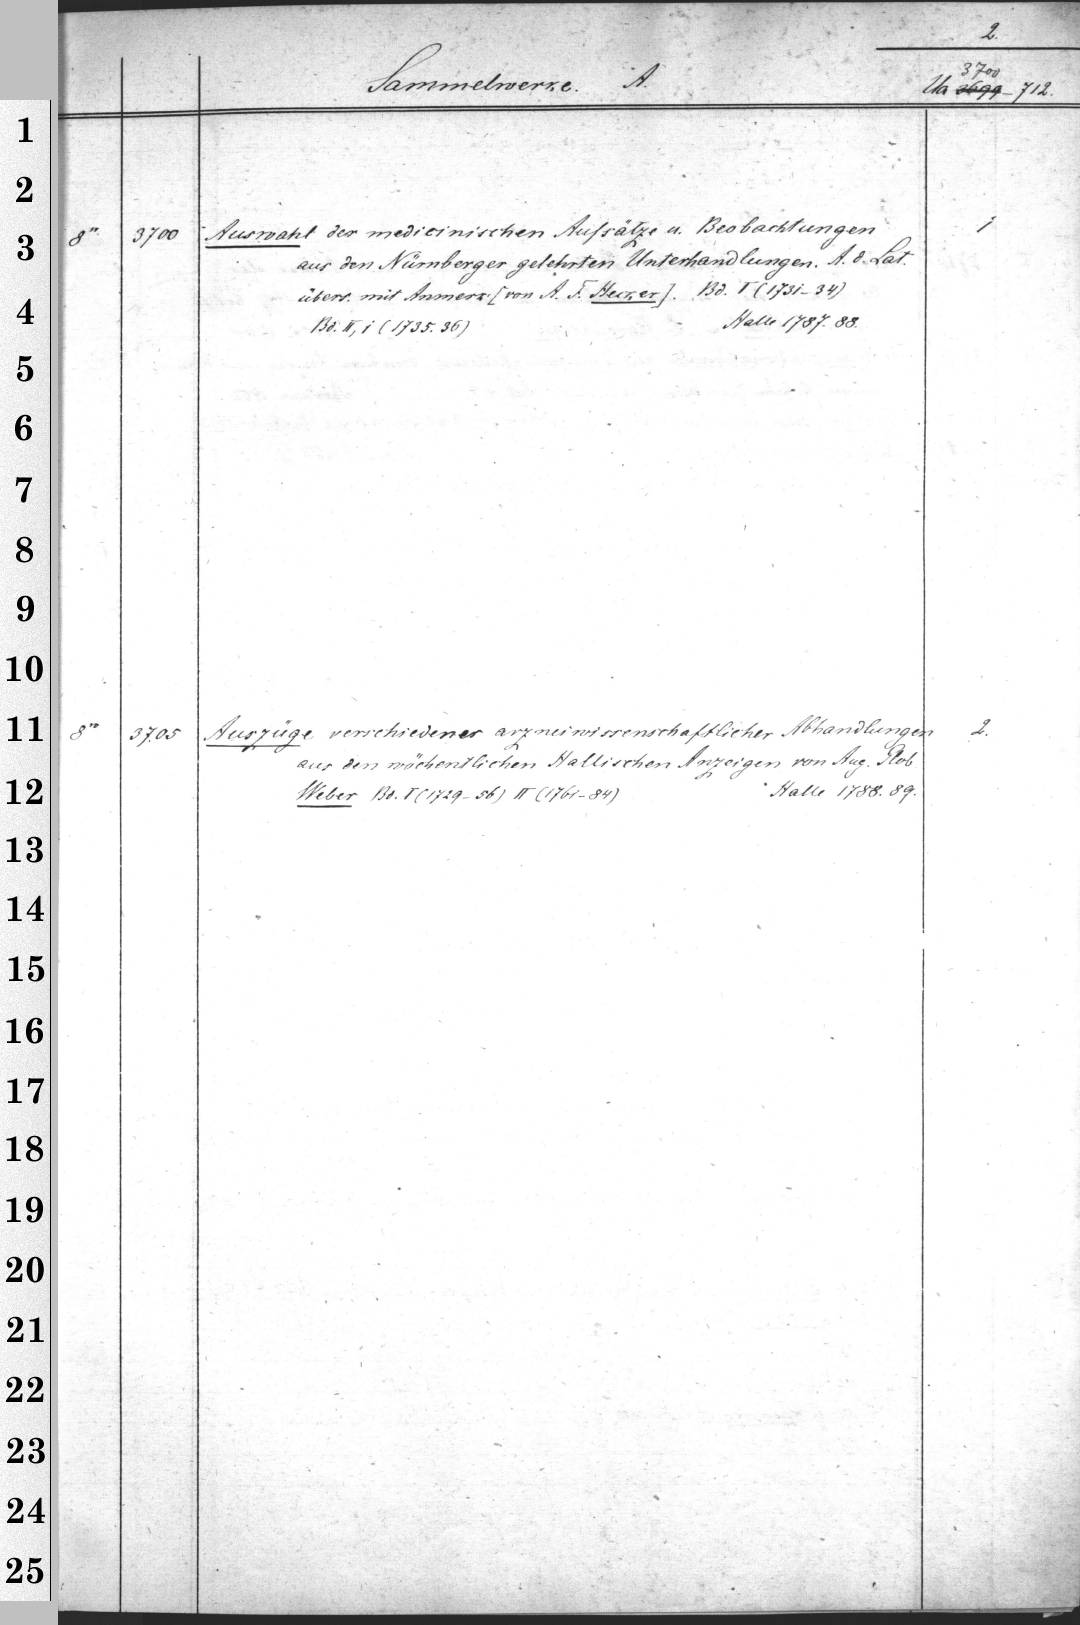 2.
Sammelwerke. A.
3700
Ua 3699-712.
1
2
3
4
5
6
7
8
9
10
11
12
13
14
15
16
17
18
19
20
21
22
23
24
25
8° 3700 Auswahl der medicinischen Aufsätze u. Beobachtungen 1
aus den Nürnberger gelehrten Unterhandlungen. A. d. Lat.
übers. mit Anmerk. [von A. F. Hecker]. Bd. I (1731-34)
Bd. II, 1 (1735. 36) Halle 1787. 88.
8vo 3705 Auszüge verschiedener arzneiwissenschaftlicher Abhandlungen 2.
aus den wöchentlichen Hallischen Anzeigen von Aug. Glob
Weber Bd. I (1729-56) II (1761-84) Halle 1788. 89.